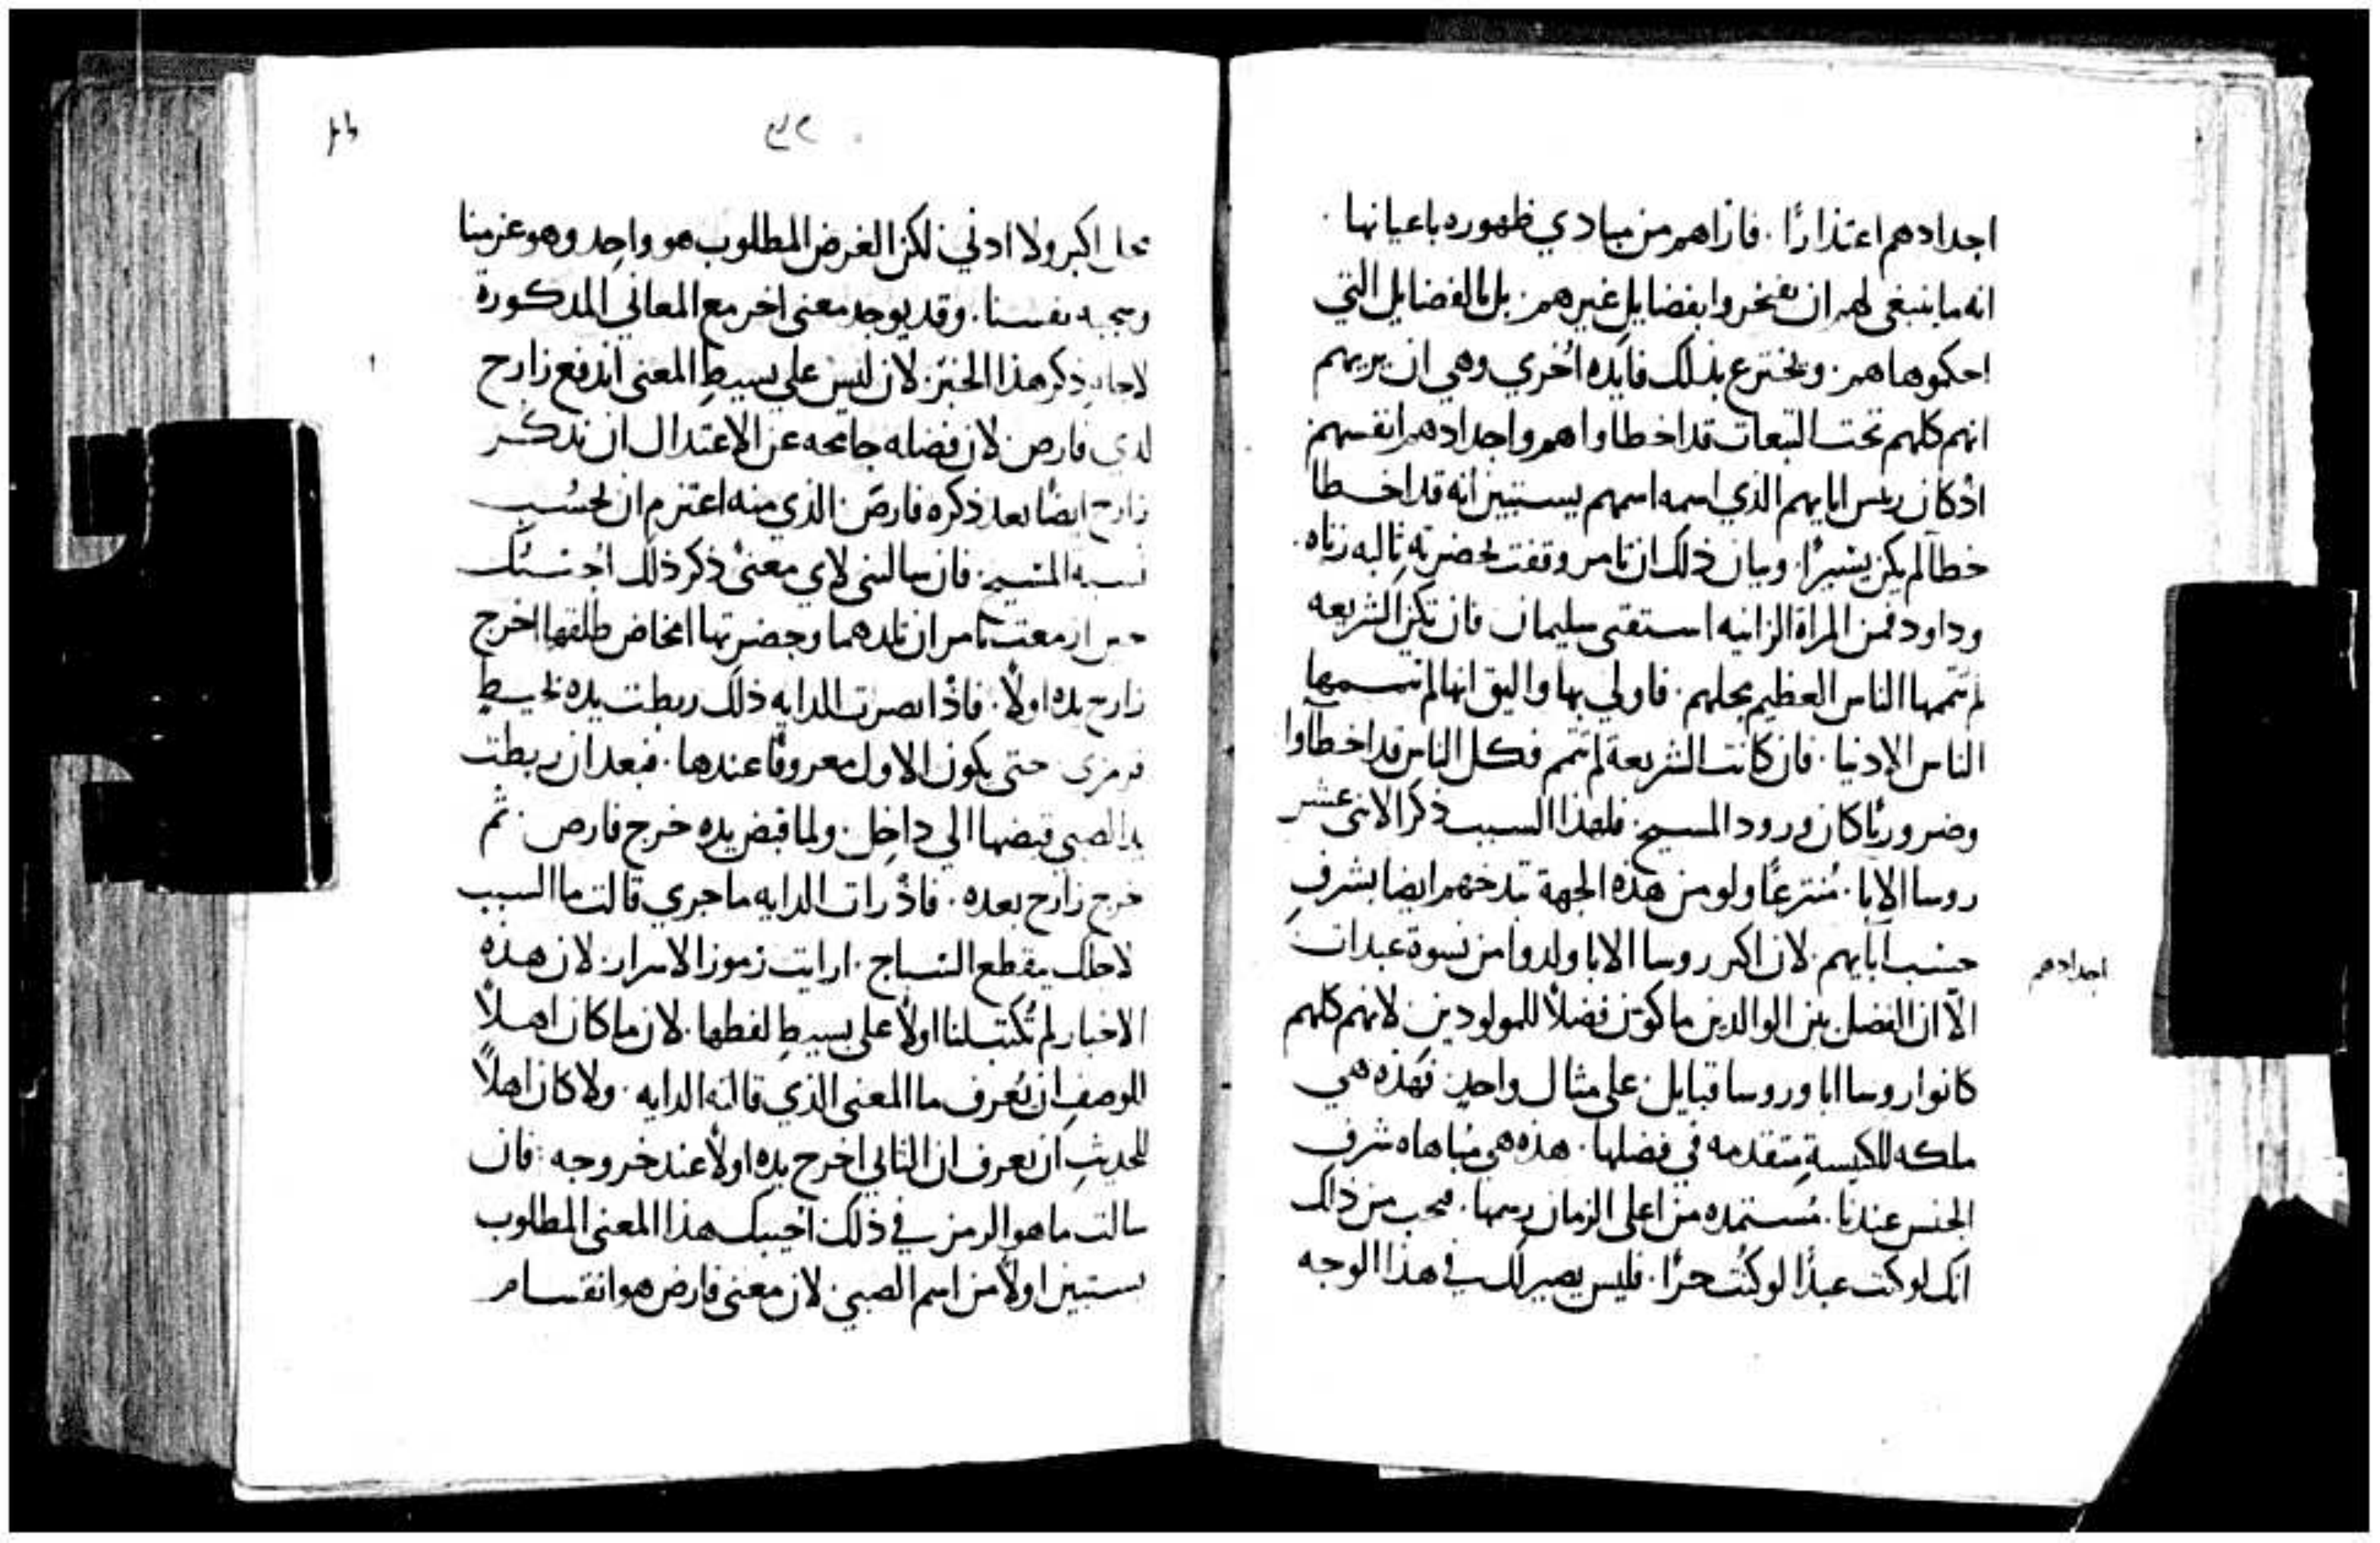 اجدادهم اعتذارًا . فاراهم من مبادي ظهوره باعيانها .
انه ما ينبغى لهم ان يفتخروا بفضايل غيرهم . بل بالفضايل التي
احكموها هم . ويخترع بذلك فايده اخري وهي ان يريهم
انهم كلهم تحت التبعات قد اخطاوا هم واجدادهم انفسهم
اذ كان ريس ابايهم الذي اسمه اسمهم يستبين انه قد اخطا
خطا لم يكن يسيرًا . وبيان ذلك ان تامر وقفت بحضرته ثالبه زناه .
وداود فمن المراة الزانيه استقنى سليمان فان تكن الشريعه
لم يتممها الناس العظيم محلهم . فاولي بها واليق انها لم يتممها
الناس الادنيا . فان كانت الشريعة لم تتم فكل الناس قد اخطاوا
وضروريًا كان ورود المسيح . فلهذا السبب ذكر الاثنى عشر
روسا الابا . مُنتزعًا ولو من هذه الجهة تبذخهم ايضا بشرف
حسب ابايهم . لان اكثر روسا الابا ولدوا من نسوة عبدات
اجدادهم
الا ان الفضل بين الوالدين ما كون فضلًا للمولودين لانهم كلهم
كانوا روسا ابا وروسا قبايل على مثال واحد . فهذه هي
ملكه للكنيسة متقدمه في فضلها . هذه هي مُباهاه شرف
الجنس عندنا . مُستمده من اعلى الزمان رسمها . فيجب من ذلك
انك لو كنت عبدًا لو كنت حرًا . فليس يصير لك في هذا الوجه
٣٢
محل اكبر ولا ادني . لكن الغرض المطلوب هو واحد وهو عزمنا
وسجيه نفسنا . وقد يوجد معنى اخر مع المعاني المذكورة
لاجله ذكر هذا الخبر . لان ليس على بسيط المعنى اندفع زارح
لدى فارص . لان فضله جامحه عن الاعتدال ان تذكر
زارح ايضًا بعد ذكره فارص . الذي منه اعتزم ان يحسب
نسبه المسيح . فان سالتنى لاي معنى ذكر ذلك اجبتك
حين ازمعت تامر ان تلدهما وحضرتها امخاض طلقها اخرج
زارح يده اولًا . فاذ ابصرت الدايه ذلك ربطت يده بخيط
قرمزى حتى يكون الاول معروفًا عندها . فبعد ان ربطت
يد الصبي قبضها الى داخل . ولما قبض يده خرج فارص . ثم
خرج زارح بعده . فاذ رات الدايه ما جري قالت ما السبب
لاجلك يقطع السياج . ارايت رموز الاسرار . لان هذه
الاخبار لم تُكتب لنا اولًا على بسيط لفظها . لان ما كان اهلًا
للوصف ان يُعرف ما المعنى الذي قالته الدايه . ولا كان اهلًا
للحديث ان يعرف ان الثاني اخرج يده اولًا عند خروجه : فان
سالت ما هو الرمز في ذلك اجيبك هذا المعنى المطلوب
يستبين اولًا من اسم الصبي . لان معنى فارص هو انقسام